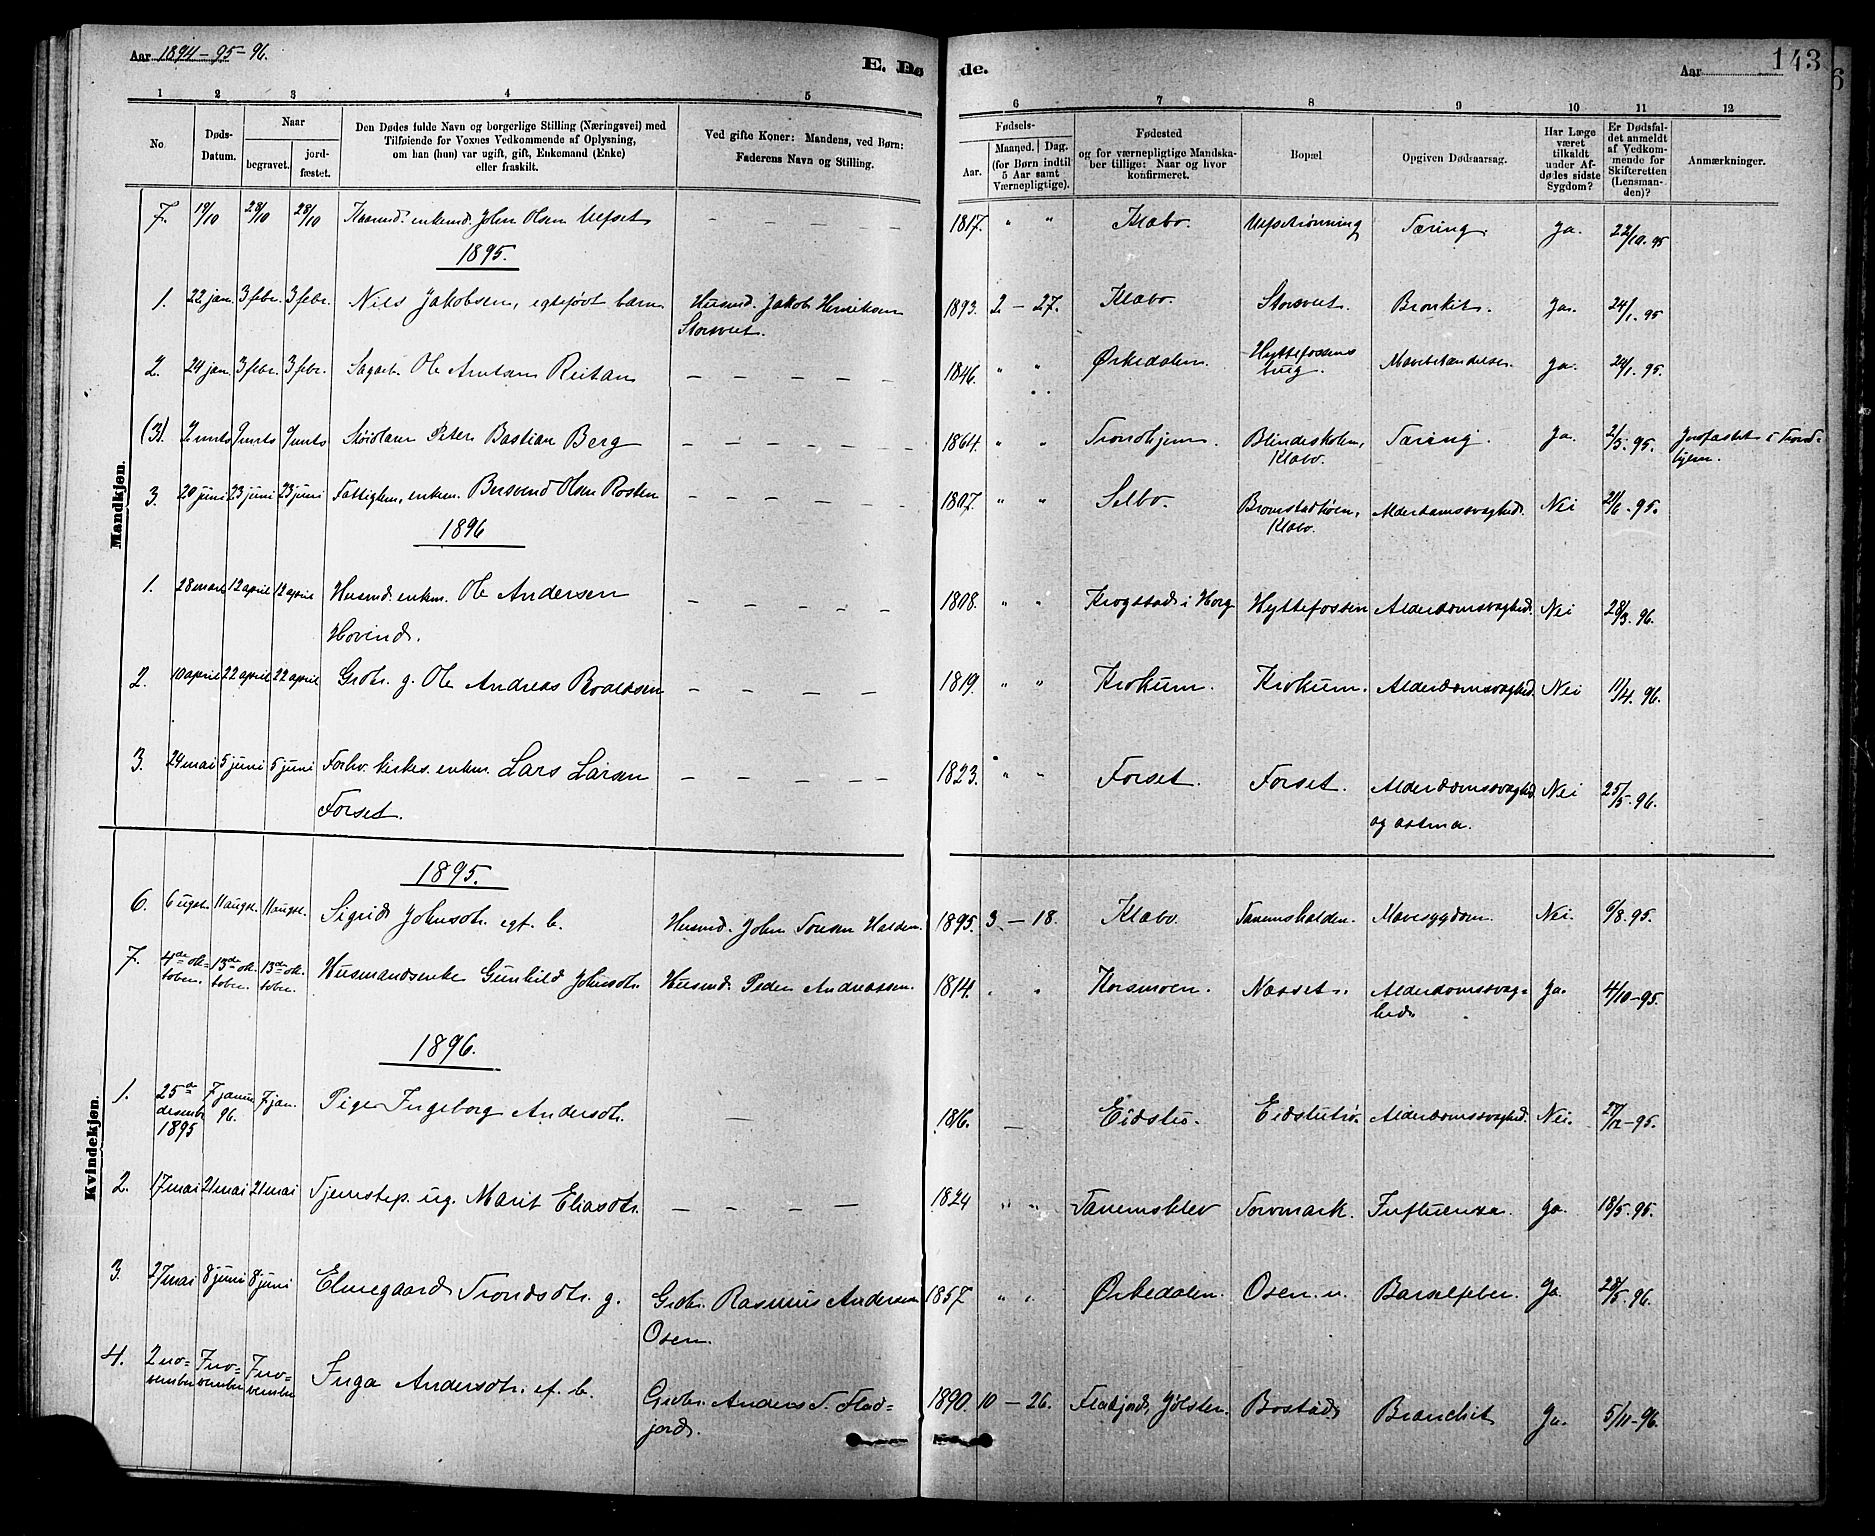 Aar 1894-95-96.
E. Døde.
Aar
143
1 2 3 4 5 6 7 8 9 10 11 12
No.
Døds-Datum.
Naar
begravet.
jord-fæstet.
Den Dødes fulde Navn og borgerlige Stilling (Næringsvei) med
Tilføiende for Voxnes Vedkommende af Oplysning,
om han (hun) var ugift, gift, Enkemand (Enke)
eller fraskilt.
Ved gifte Koner: Mandens, ved Børn:
Faderens Navn og Stilling.
Fødsels-
Aar.
Maaned. Dag.
(for Børn indtil
5 Aar samt
Værnepligtige).
Fødested
og for værnepligtige Mandska-
ber tillige: Naar og hvor
konfirmeret.
Bopæl
Opgiven Dødsaarsag.
Har Læge
været
tilkaldt
under Af-
dødes sidste
Sygdom?
Er Dødsfal-
det anmeldt
af Vedkom-
mende for
Skifteretten
(Lensman-
den)?
Anmærkninger.
Mandkjøn.
7. 19/10 28/10 28/10 enkemd. John Olsen Ulfset — — — — — 1817. " " Klæbo. Tæring. Ja. 22/10 95
1895.
1. 22 jan. 3 febr. 3 febr. Nils Jakobsen, egtefødt barn Husmd. Jakob Henriksen 1893. 2 — 27. Klæbo. Storsvet. Bronkit. Ja. 24/1. 95
Storsvet.
2. 24 jan. 3 febr. 3 febr. Sagarb. Ole Arntsen Reitan — — — — — 1846. " " Ørkedalen. Hyttefossens Ja. 24/1. 95.
brug.
(3). 2 marts 9 marts 9 marts Peter Bastian Berg — — — — — 1864. " " Trondhjem. Blindesholm, Tæring. Ja 2/3. 95. Jordfæstet i Trond-
Klæbo. hjem.
3. 20 juni 23 juni 23 juni Fattiglem, enkem. Bersvend Olsen Rosten — — — — — 1807. " " Selbo. Alderdomssvaghed. Nei 21/6 - 95.
Klæbo.
1896
1. 28 mars 12 april 12 april Husmd. enkem. Ole Andersen — — — — — 1808. " " Krogstad i Horg Hyttefossen Alderdomssvaghed. Nei 28/3. 96.
Hovind.
2. 10 april 22 april 22 april Grdbr. g. Ole Andreas — — — — — 1819. " " Krokum. Krokum. Alderdomssvaghed. Nei 11/4. 96.
3. 24 mai 5 juni 5 juni Forhv. kirkes. enkm. Lars Larsen — — — — — 1823. " " Forset. Forset. Alderdomssvaghed Nei 25/5 - 96.
Forset. og astma.
Kvindekjøn.
1895.
6. 6 augst. 11 augst. 11 augst. Sigrid Johnsdtr. egt. b. Husmd. John Tonsen Halden. 1895. 3 — 18. Klæbo. Tanemshalden. Mavesygdom. Nei. 6/8. 95.
7. 4de ok- 13de ok- 13de ok- Husmandsenke Gunhild Johnsdtr. Husmd. Peder Andreassen. 1814. " " Korsmoen. Næsset. Alderdomssvag- Ja. 4/10 - 95.
tober. tober. tober. hed.
1896.
1. 25de 7 januar 7 jan. Pige Ingeborg Andersdtr. — 1816. — Eidstu. Eidstutrø. Alderdomssvaghed. Nei. 27/12 - 95.
desember 96.
1895
2. 17 mai 21 mai 21 mai Tjenstep. ug. Marit Eliasdtr. — — — — 1824 " " Tanemsklev Torvmark. Influenza. Ja. 18/5. 96.
3. 27 mai 8 juni 8 juni Elmegaard Trondsdtr. g. Grdbr. Rasmus Andersen 1857 " " Ørkedalen. Osen. n. Barselfeber. Ja 28/5 - 96.
Osen.
4. 2 no- 7 no- 7 no- Inga Andersdtr. ef. b. Grdbr. Anders T. Flad- 1890. 10 — 26. Flatjord, Jølster. Bostad Bronchit Ja. 5/11 - 96.
vember vember vember jord.